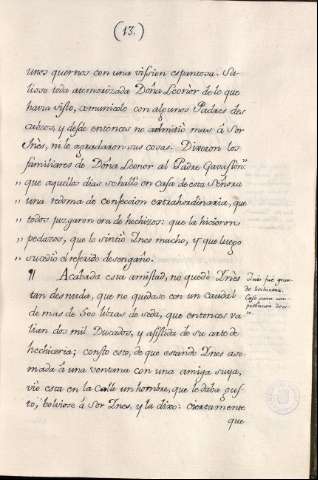 (13.)
unos quernos con una vission espantosa. Sa-
lisse toda atemorizada Doña Leonòr de lo que
havia visto, comunicòlo con algunos Padres des
calzos, y desde entonces no admitiò mas à Sor
Inès, ni le agradaron sus cosas. Dixeron los
familiares de Doña Leonor al Padre
" que aquellos dias se hallò en casa de esta Señora
" una redoma de confeccion extrahordinaria, que
" todos juzgaron era de hechizos: que la hicieron
" pedazos, que lo sintiò Ines mucho, y que luego
" sucediò el referido desengaño.
¶ Acabada esta amistad, no quedò Inès
tan desnuda, que no quedase con un caudal
de mas de 500 libras de seda, que entonces va
lian dos mil Ducados, y assistida de su arte de
hechiceria; consto esto, de que estando Ines aso
mada à una ventana con una amiga suya,
viò esta en la calle un hombre, que le daba gus-
to, bolviose à Sor Ines, y la dixo: Ciertamente
que
Inès fuè gran-
de hechicera.
Caso para com-